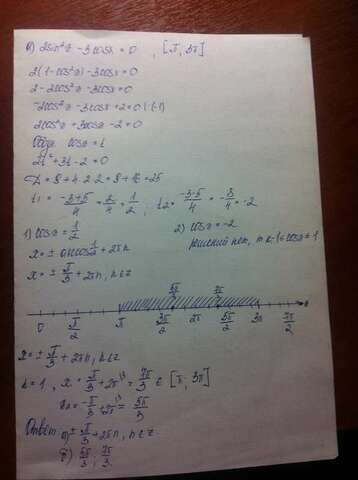 а) 2sin²x - 3cosx = 0 , [π, 3π]
2(1 - cos²x) - 3cosx = 0
2 - 2cos²x - 3cosx = 0
-2cos²x - 3cosx + 2 = 0 | (-1)
2cos²x + 3cosx - 2 = 0
cosx = t
2t² + 3t - 2 = 0
D = 9 + 4·2·2 = 9 + 16 = 25
t₁ = (-3+5)/4 = 2/4 = 1/2 ; t₂ = (-3-5)/4 = -8/4 = -2
1) cosx = 1/2
2) cosx = -2
x = ± arccos 1/2 + 2πn
решений нет, т.к -1 ≤ cosx ≤ 1
x = ± π/3 + 2πn, n∈z
5π/3 7π/3
0 π/2 π 3π/2 2π 5π/2 3π 7π/2
x = ± π/3 + 2πn, n∈z
n = 1, x = π/3 + 2π = 7π/3 ∈ [π, 3π]
x₂ = -π/3 + 2π = 5π/3
Ответ: а) ± π/3 + 2πn, n∈z
б) 5π/3 ; 7π/3